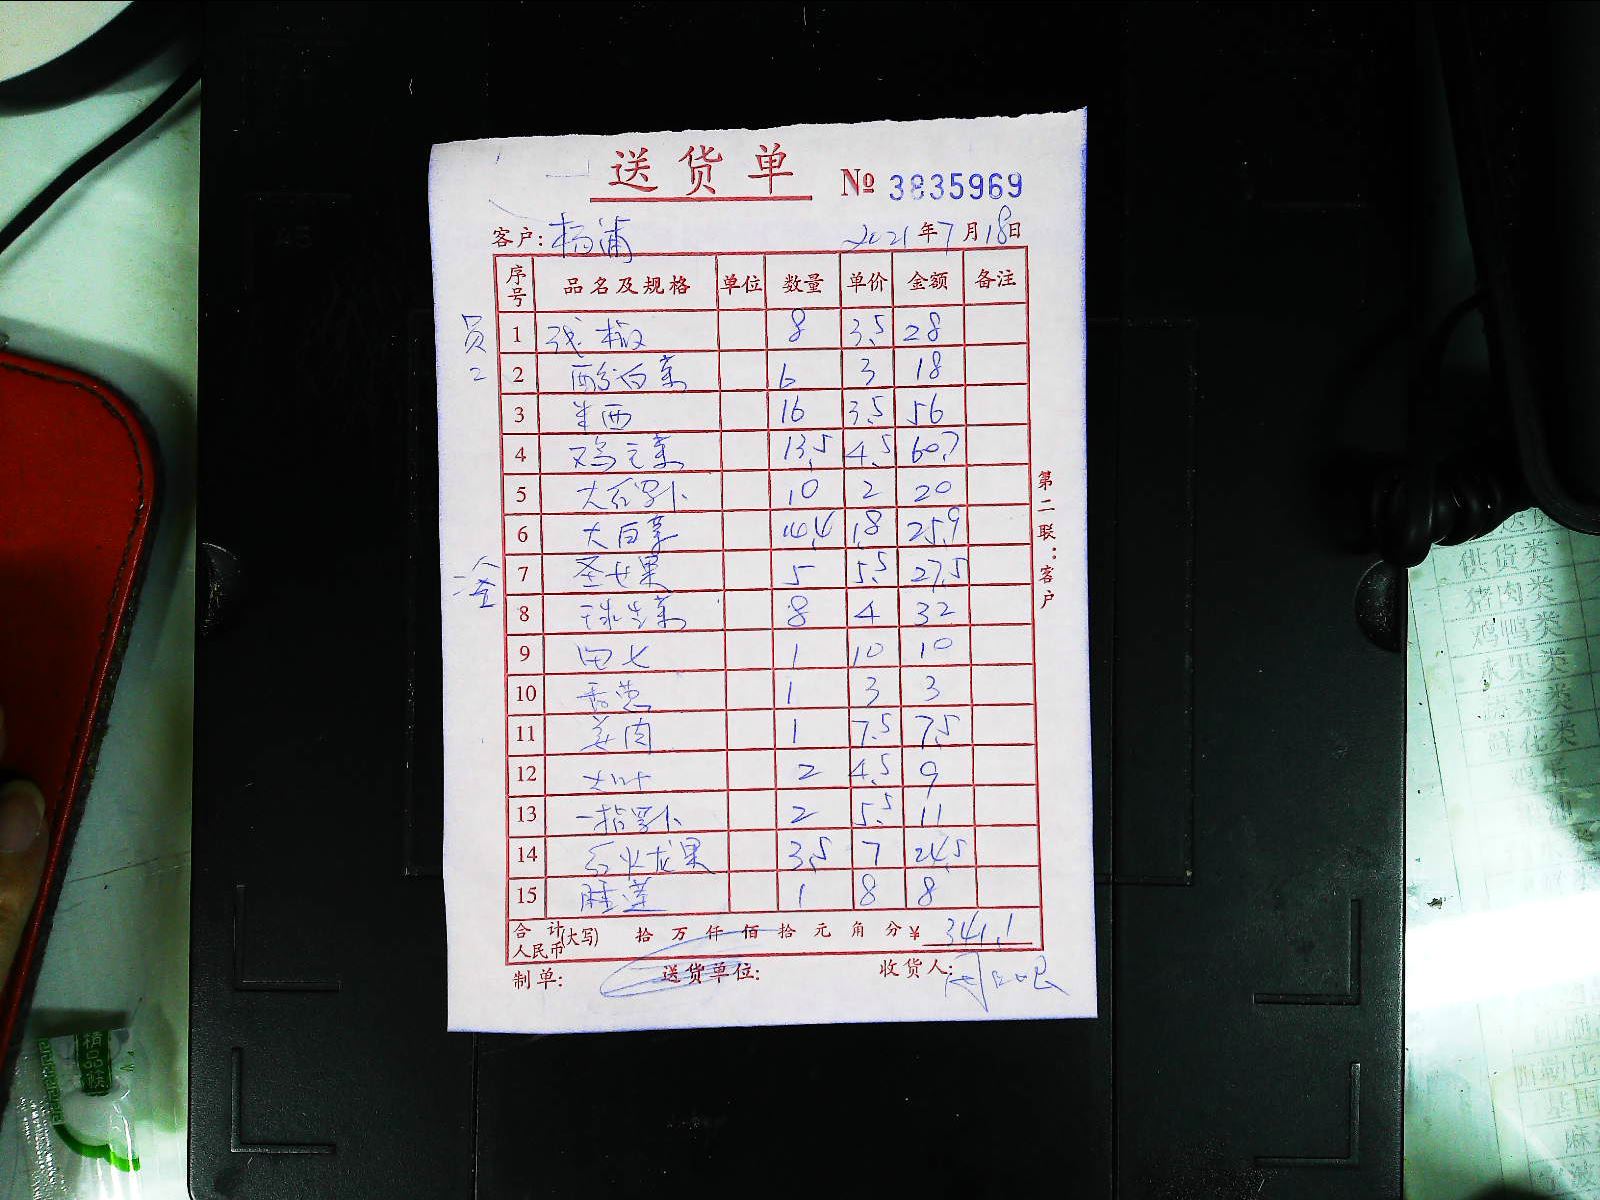 送货单 № 3835969
客户: 杨浦 2021年7月18日
序号 品名及规格 单位 数量 单价 金额 备注
员 1 线椒 8 3.5 28
2 2 酸白菜 6 3 18
3 米西 16 3.5 56
4 鸡毛菜 13.5 4.5 60.7
5 大红罗卜 10 2 20
6 大白菜 14.4 1.8 25.9
冷 7 圣女果 5 5.5 27.5
8 球生菜 8 4 32
9 田七 1 10 10
10 香葱 1 3 3
11 姜肉 1 7.5 7.5
12 大叶 2 4.5 9
13 一指罗卜 2 5.5 11
14 红火龙果 3.5 7 24.5
15 睡莲 1 8 8
合计人民币(大写) 拾 万 仟 佰 拾 元 角 分 ¥ 341.1
制单: 送货单位: 收货人:
第二联:客户
供货类
猪肉类
鸡鸭类
水果类
蔬菜类
鲜花类
精品筷